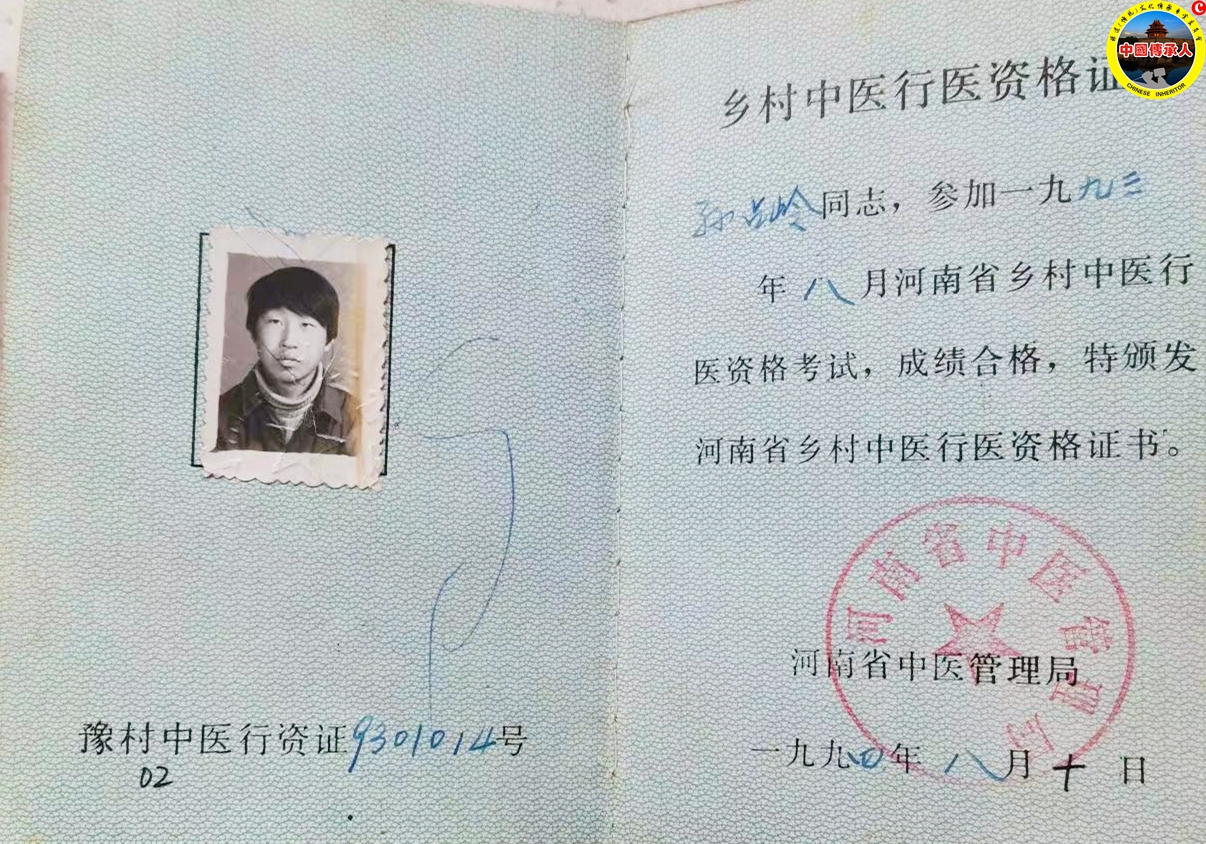 豫村中医行资证9301014号
02
乡村中医行医资格证
孙占岭同志，参加一九九三
年八月河南省乡村中医行
医资格考试，成绩合格，特颁发
河南省乡村中医行医资格证书。
河南省中医管理局
河南省中医管理局
一九九四年八月十日
中國傳承人
CHINESE INHERITOR
C